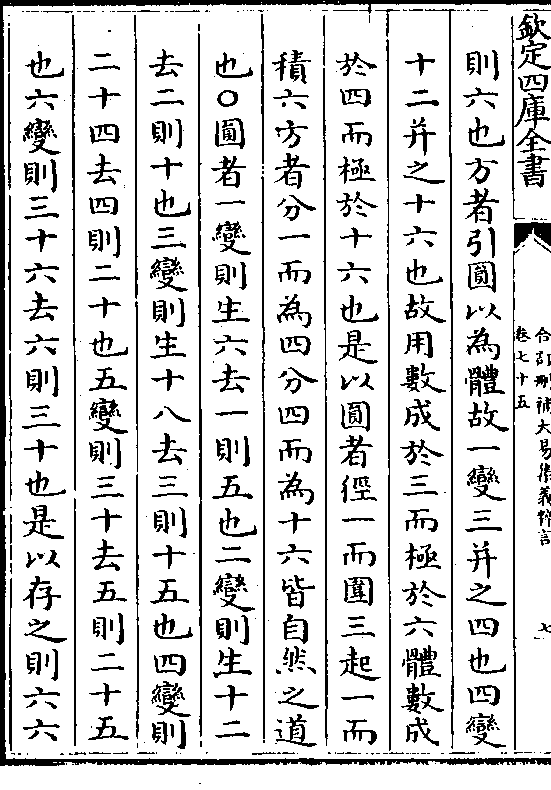 欽定四庫全書
合訂刪補大易集義粹言
卷七十五
七
則六也方者引圓以為體故一變三并之四也四變
十二并之十六也故用數成於三而極於六體數成
於四而極於十六也是以圓者徑一而圍三起一而
積六方者分一而為四分四而為十六皆自然之道
也○圓者一變則生六去一則五也二變則生十二
去二則十也三變則生十八去三則十五也四變則
二十四去四則二十也五變則三十去五則二十五
也六變則三十六去六則三十也是以存之則六六